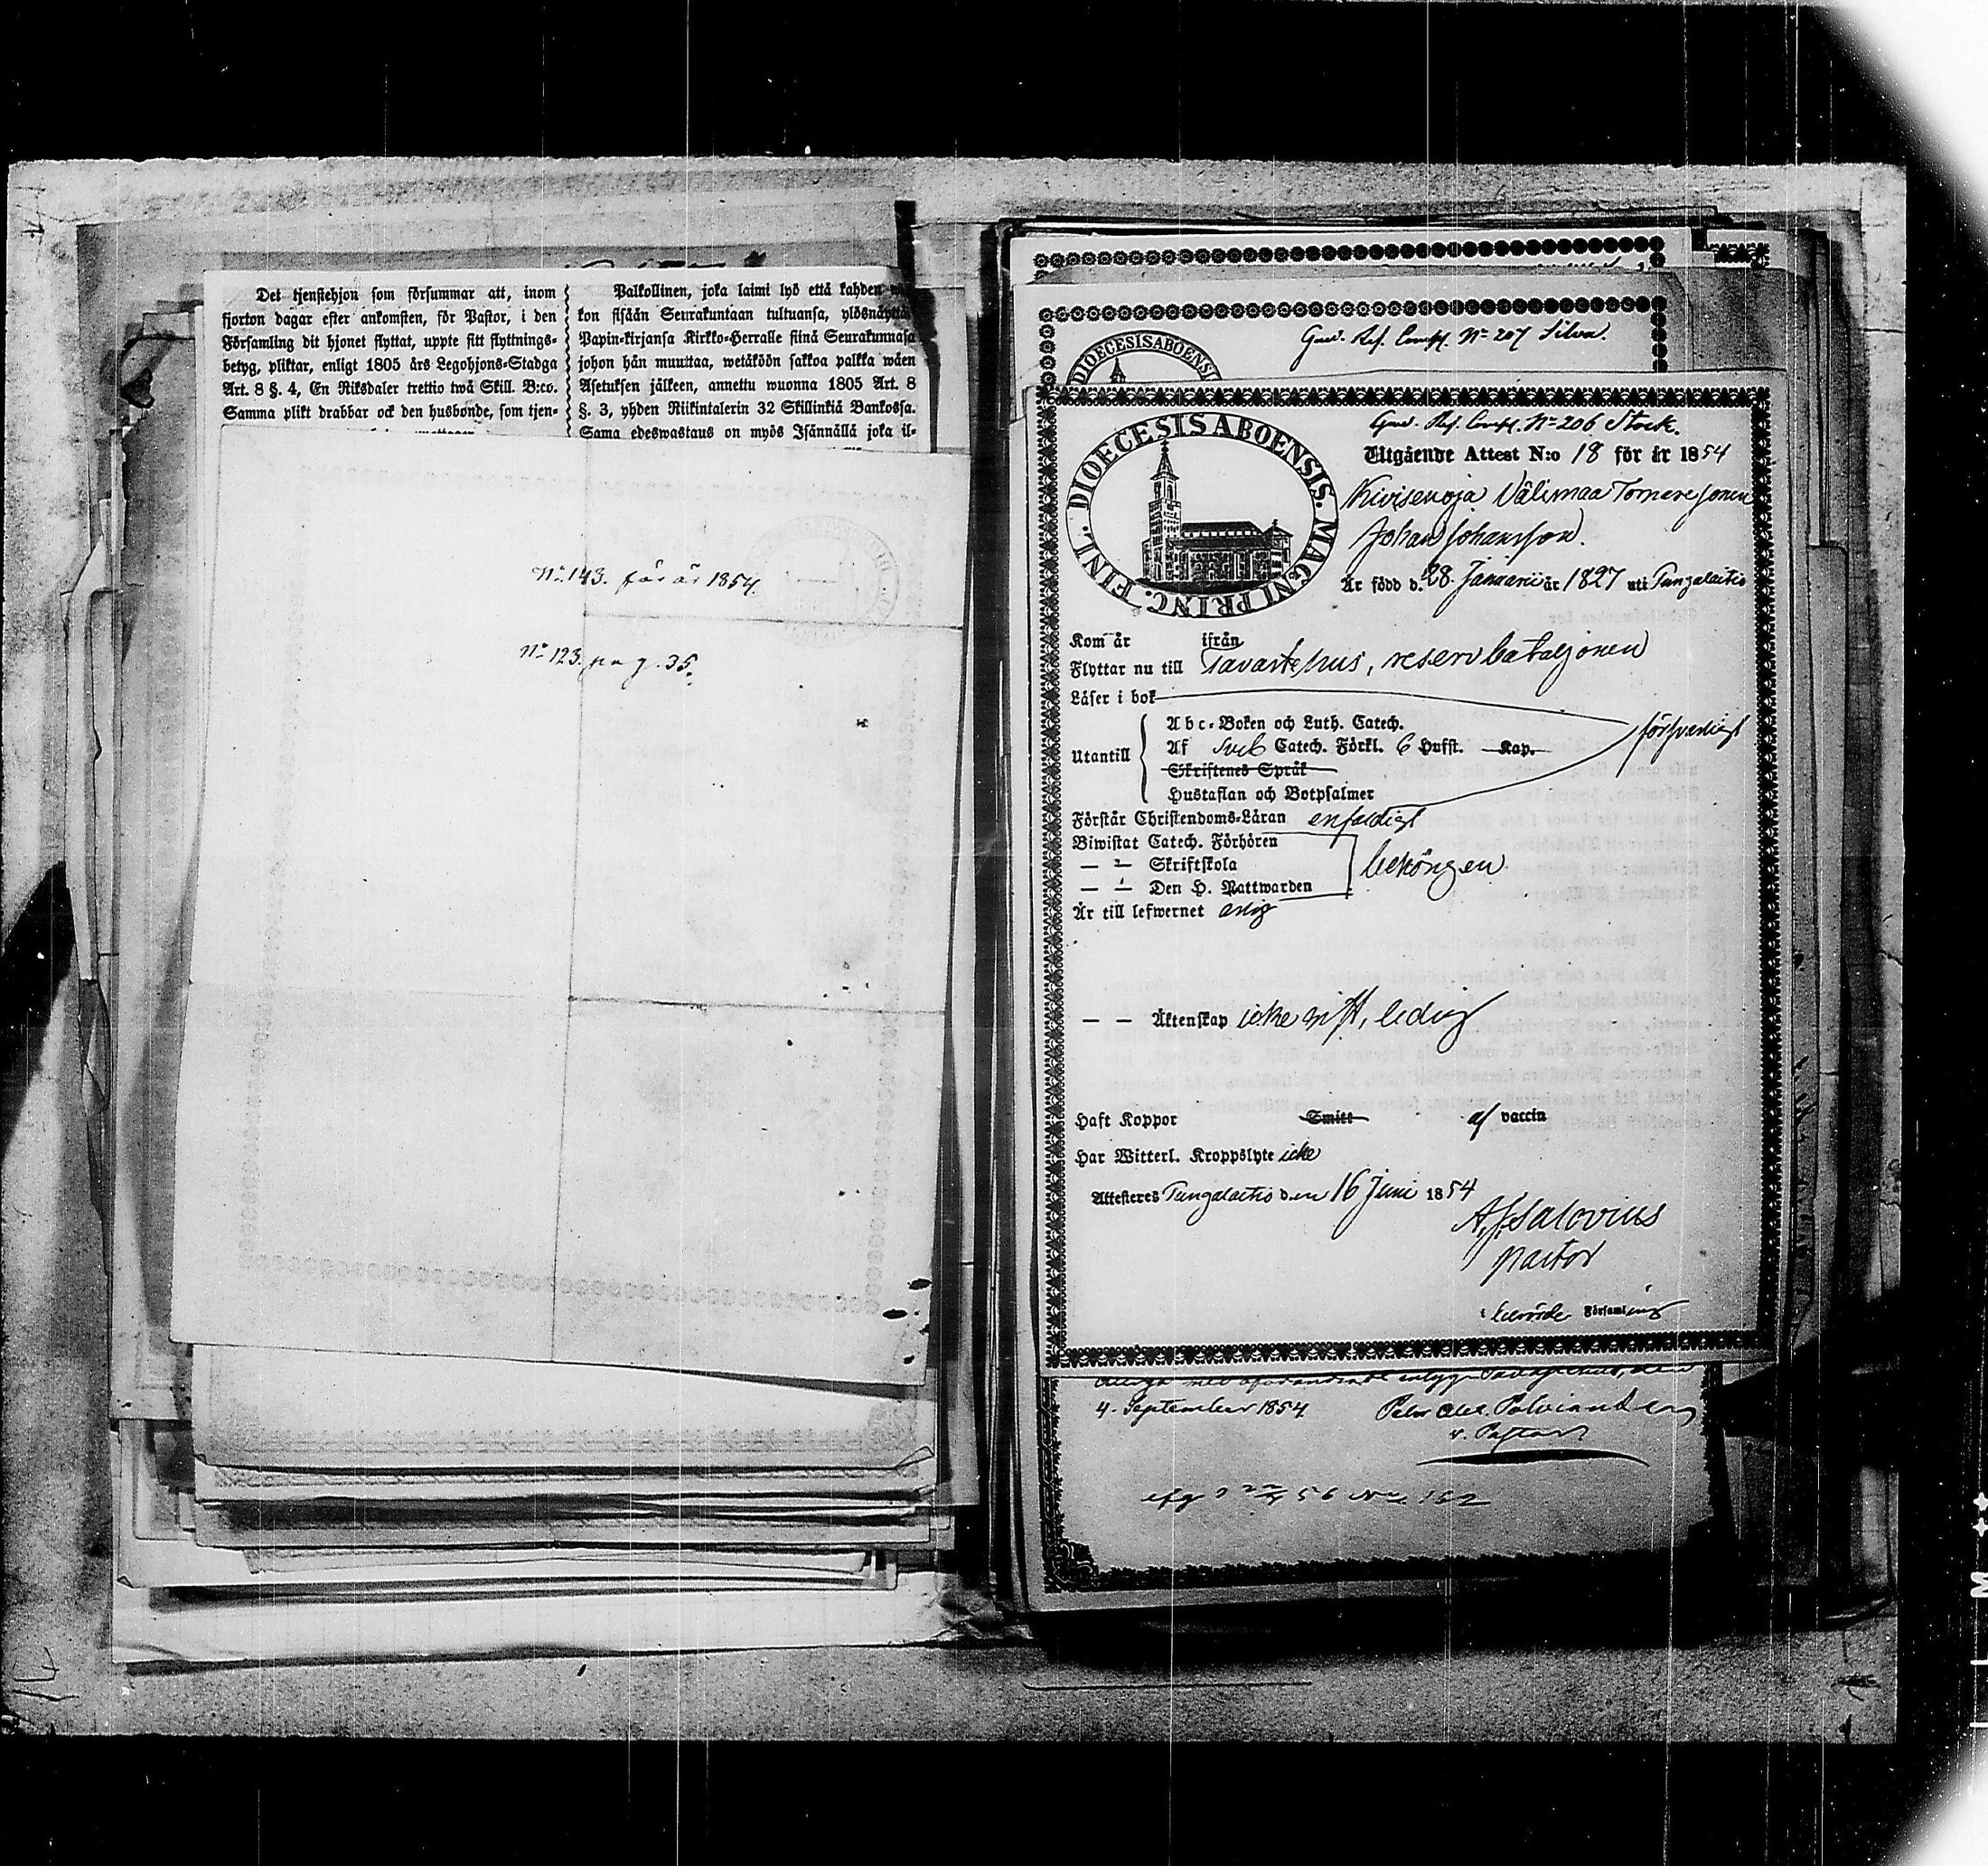 Det tjenstehjon som försummar att, inom
fjorton dagar efter ankomsten, för Pastor, i den
Församling dit hjonet flyttat, uppte sitt flyttnings-
betyg, pliktar, enligt 1805 års Legohjons-Stadga
Art. 8 §. 4, En Riksdaler trettio twå Skill. B:co.
Samma plikt drabbar ock den husbonde, som tjen-
Palkollinen, joka laimi lyö että kahden
kon sisään Seurakuntaan tultuansa, ylösnäyttä
Papin-kirjansa Kirkko-Herralle siinä Seurakunnasa
johon hän muuttaa, wetäköön sakkoa palkka wäen
Asetuksen jälkeen, annettu wuonna 1805 Art. 8
§. 3, yhden Riikintalerin 32 Skillinkiä Bankossa.
Sama edeswastaus on myös Isännällä joka il-
No 143. för år 1854.
No 123. pag. 35.
DIOECESIS ABOENSIS
Gred. Res. Comp. No 207 Silva.
DIOECESIS ABOENSIS. MAGNI PRINC. FINL.
Gred. Res. Comp. No 206 Stock.
Utgående Attest N:o 18 för år 1854
Kivisenoja Välimaa
Johan Johansson.
Är född d. 28. Januarii år 1827 uti Pungalaitio
Kom år ifrån
Flyttar nu till Tavastehus, reservbataljonen
Läser i bok
Abc-Boken och Luth. Catech.
försvarligt
Utantill
Af Sveb Catech. Förkl. 6 Hufst. Kap.
Skriftenes Språk
Hustaflan och Botpsalmer
Förstår Christendoms-Läran enfaldigt
Biwistat Catech. Förhören
— " — Skriftskola
behörigen
— " — Den H. Nattwarden
Är till lefwernet ärlig
— — Äktenskap icke gift, ledig
Haft Koppor Smitt af vaccin
Har Witterl. Kroppslyte icke
Attesteres Pungalaitio den 16 Juni 1854
A. J. Salovius
pastor
i berörde Församling
4. September 1854
v. Pastor